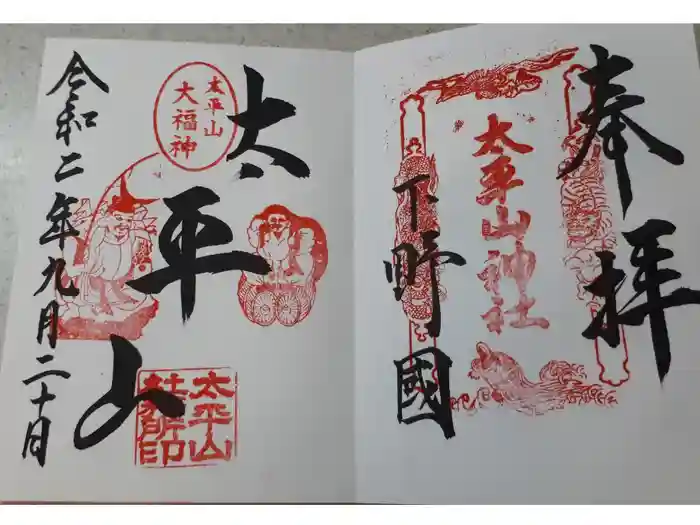 奉拝
太平山神社
下野國
太平山
太平山
大福神
太平山
社務所印
令和二年九月二十日